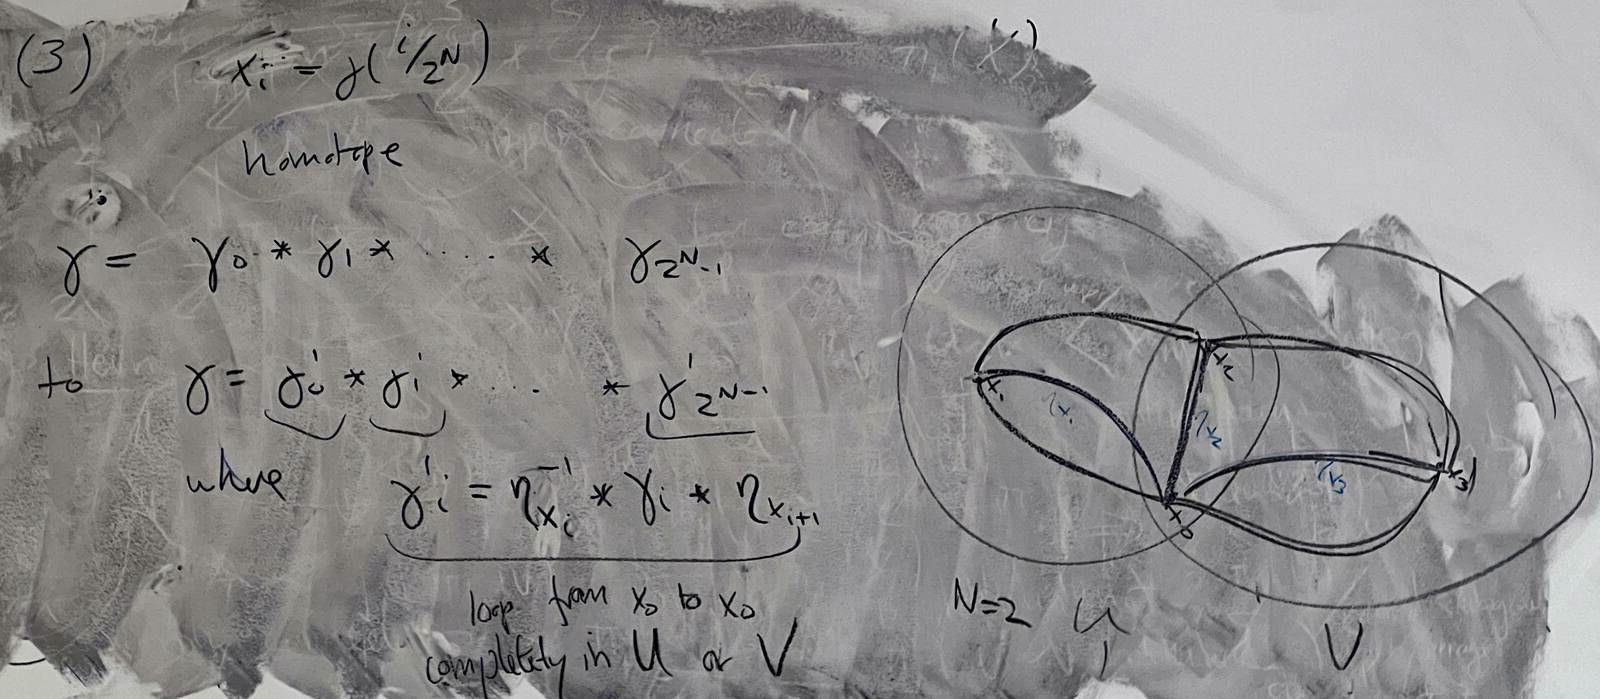 (3) xᵢ = γ(i/2ᴺ)
homotope
γ = γ₀ * γ₁ * ..... * γ_{2ᴺ-1}
to γ = γ₀' * γ₁' * ... * γ'_{2ᴺ-1}
where γᵢ' = η_{xᵢ}⁻¹ * γᵢ * η_{xᵢ₊₁}
loop from x₀ to x₀
completely in U or V
x₁
η_{x₁}
x₂
η_{x₂}
η_{x₃}
x₃
x₀
N=2 U
V